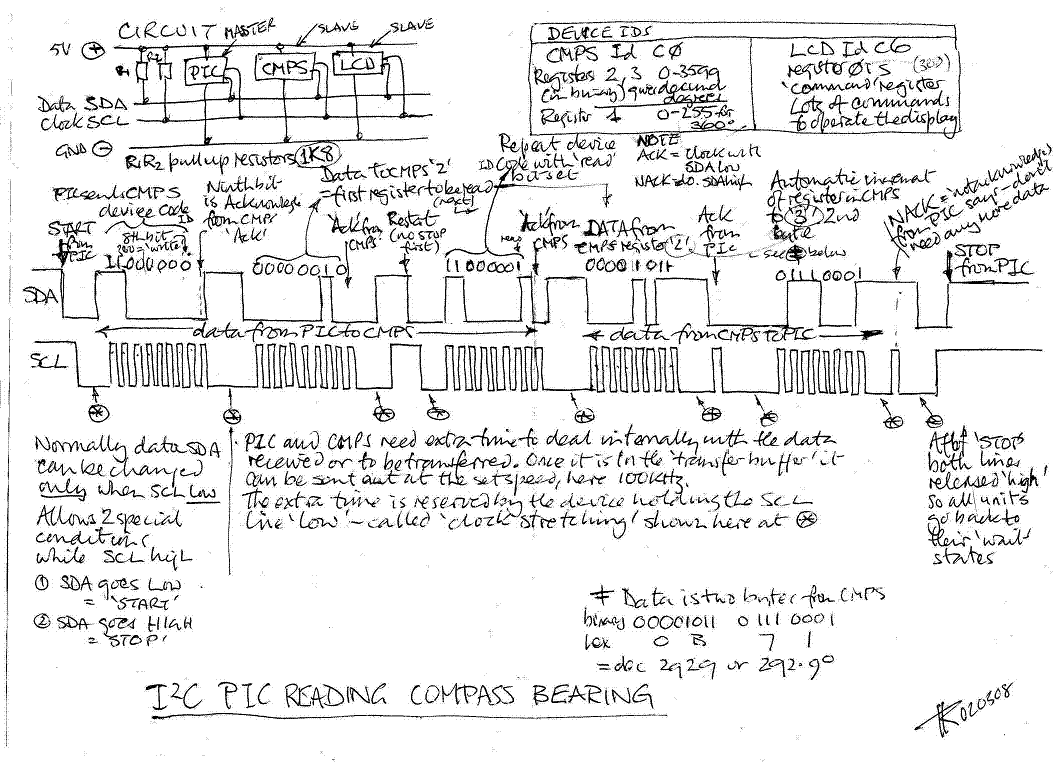 CIRCUIT
MASTER
SLAVE
SLAVE
5V
R1
R2
PIC
CMPS
LCD
Data SDA
Clock SCL
GND
R1 R2 pull up resistors 1K8
DEVICE IDS
CMPS Id C0
Registers 2, 3 0-3599
(in binary) gives decimal
degrees
Register 1 0-255 for
360°
LCD Id C6
register 0 is
'command' register
Lots of commands
to operate the display
PIC sends CMPS
device code
ID
START
from
PIC
8th bit =
zero = 'write'
11000000
Ninth bit
is Acknowledge
from CMPS
'Ack'
Data to CMPS '2'
= first register to be read
(next)
00000010
'Ack' from
CMPS
Restart
(no STOP
first)
Repeat device
ID code with 'read'
bit set
read
11000001
NOTE
ACK = clock with
SDA low
NACK = do. SDA high
Ack from
CMPS
DATA from
CMPS register '2'
00001011
Ack
from
PIC
Automatic
of register in CMPS
to '3' 2nd
byte
see ‡ below
01110001
NACK = 'not acknowledge'
from PIC says - don't
need any more data
STOP
from PIC
SDA
data from PIC to CMPS
data from CMPS to PIC
SCL
Normally data SDA
can be changed
only when SCL low
Allows 2 special
conditions
while SCL high
① SDA goes LOW
= 'START'
② SDA goes HIGH
= 'STOP'
PIC and CMPS need extra time to deal internally with the data
received or to be transferred. Once it is in the 'transfer buffer' it
can be sent out at the set speed, here 100kHz.
The extra time is reserved by the device holding the SCL
line 'low' - called 'clock stretching' shown here at ⊛
After 'STOP'
both lines
released 'high'
so all units
go back to
their 'wait'
states
‡ Data is two bytes from CMPS
binary 00001011 0111 0001
hex 0 B 7 1
= dec 2929 or 292.9°
I2C PIC READING COMPASS BEARING
020308